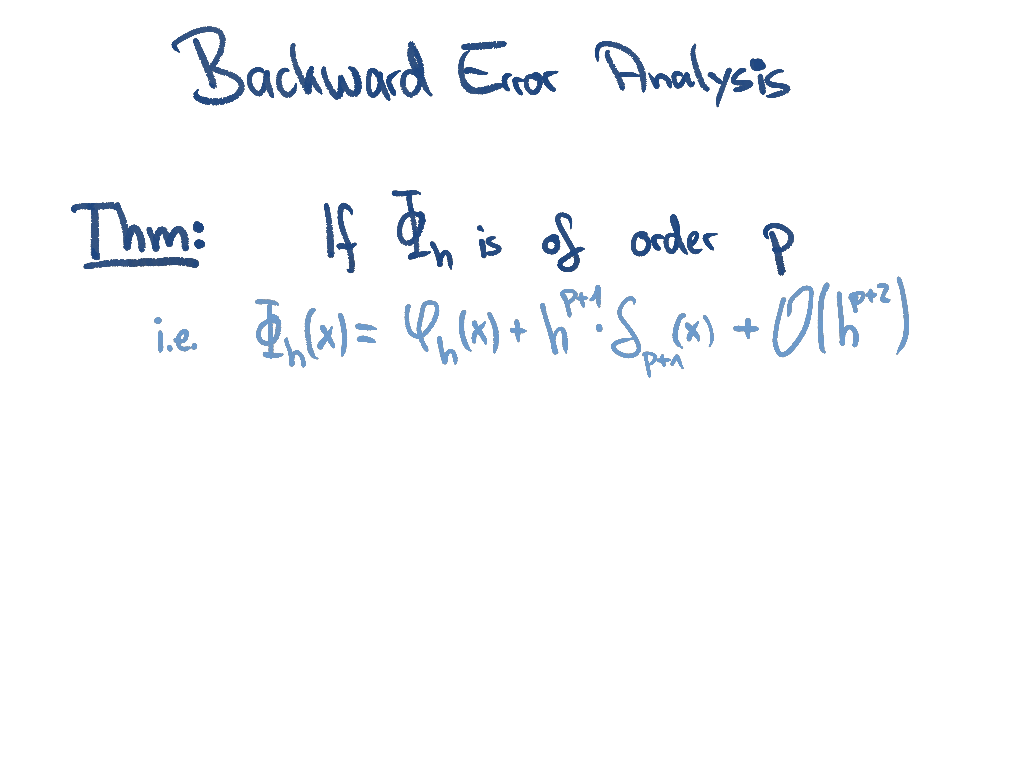 Backward Error Analysis
Thm: If Φ_h is of order p
i.e. Φ_h(x) = φ_h(x) + h^{p+1} · δ_{p+1}(x) + O(h^{p+2})